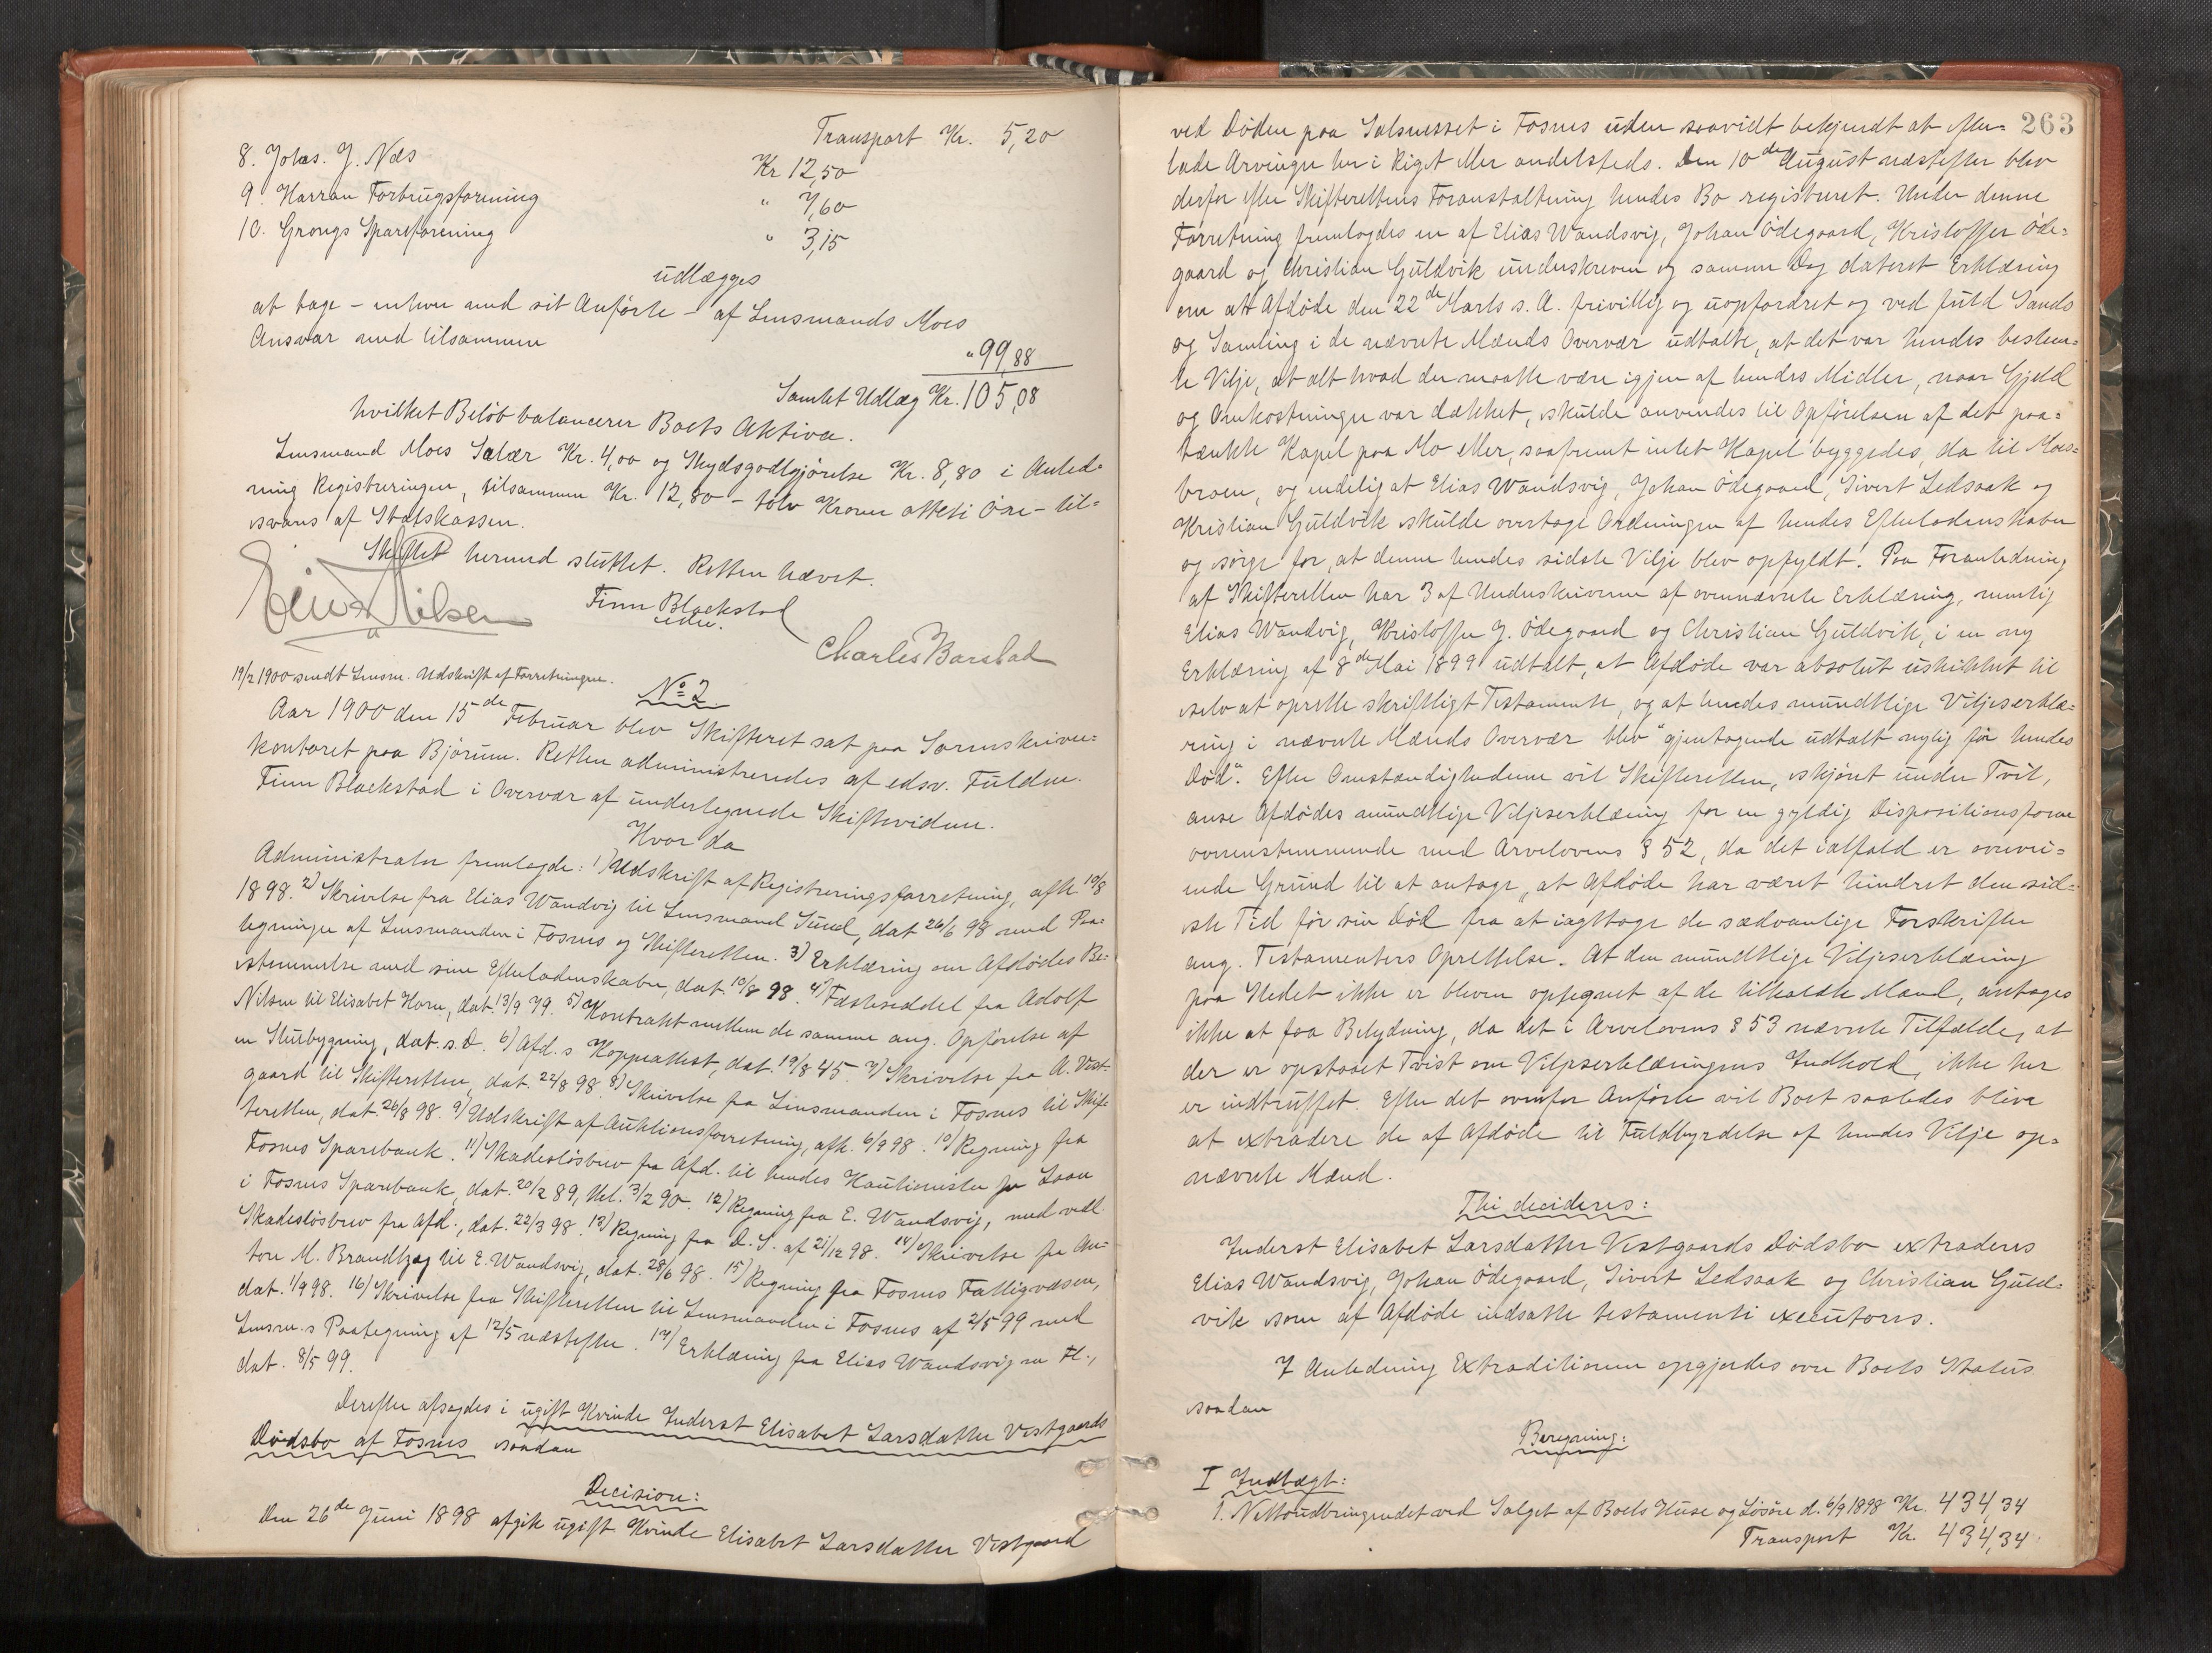 Transport Kr. 5,20
8. Johs. J. Næs Kr 12,50
9. Harran Forbrugsforening " 7,60
10. Grongs Spareforening " 3,15
udlægges
at tage – enhver med sit Anførte – af Lensmands Moes
Ansvar med tilsammen " 99,88
Samlet Udlæg Kr. 105,08
hvilket Beløb balancerer Boets Aktiva.
Lensmand Moes Salær Kr. 4,00 og Skydsgodtgjørelse Kr. 8,80 i Anled-
ning Registreringen, tilsammen Kr. 12,80 – tolv Kroner otteti Øre – til-
svares af Statskassen.
Skiftet hermed sluttet. Retten hævet.
Finn Blackstad
edsv.
Charles Barstad
19/2 1900 sendt Lensm. Udskrift af Forretningen.
No 2
Aar 1900 den 15de Februar blev Skifteret sat paa Sorenskriver-
kontoret paa Bjørum. Retten administreredes af edsv. Fuldm.
Finn Blackstad i Overvær af undertegnede Skiftevidner.
Hvor da
Administrator fremlagde: 1) Udskrift af Registreringsforretning, afh. 10/8
1898. 2) Skrivelse fra Elias Wandvig til Lensmand Sund, dat 26/6 98 med Paa-
tegninger af Lensmanden i Fosnes og Skifteretten. 3) Erklæring om Afdødes Be-
stemmelse med sine Efterladenskaber, dat. 10/8 98. 4) Fæsteseddel fra Adolf
Nilsen til Elisabet Horn, dat. 13/9 79. 5) Kontrakt mellem de samme ang. Opførelse af
en Stuebygning, dat. s. D. 6) Afd.s Koppeattest, dat. 19/8 45. 7) Skrivelse fra A. Vest-
gaard til Skifteretten, dat. 22/8 98. 8) Skrivelse fra Lensmanden i Fosnes til Skif-
teretten, dat. 26/8 98. 9) Udskrift af Auktionsforretning, afh. 6/9 98. 10) Regning fra
Fosnes Sparebank. 11) Skadesløsbrev fra Afd. til hendes Kautionister for Laan
i Fosnes Sparebank, dat. 20/2 89, thl. 3/2 90. 12) Regning fra E. Wandsvig, med vedl.
Skadesløsbrev fra Afd., dat. 22/3 98. 13) Regning fra D. S. af 21/12 98. 14) Skrivelse fra Au-
tor M. Brandtzæg til E. Wandsvig, dat. 28/6 98. 15) Regning fra Fosnes Fattigvæsen,
dat. 1/9 98. 16) Skrivelse fra Skifteretten til Lensmanden i Fosnes af 2/5 99 med
Lensm.s Paategning af 12/5 næstefter. 17) Erklæring fra Elias Wandsvig m. Fl.,
dat. 8/5 99.
Derefter afsagdes i ugift Kvinde Inderst Elisabet Larsdatter Vestgaards
Dødsbo af Fosnes saadan
Decision:
Den 26de Juni 1898 afgik ugift Kvinde Elisabet Larsdatter Vestgaard
263
ved Døden paa Salsnesset i Fosnes uden saavidt bekjendt at efter-
lade Arvinger her i Riget eller andetsteds. Den 10de August næstefter blev
derfor efter Skifterettens Foranstaltning hendes Bo registreret. Under denne
Forretning fremlagdes en af Elias Wandsvig, Johan Ødegaard, Kristoffer Øde-
gaard og Christian Guldvik underskreven og samme Dag dateret Erklæring
om at Afdøde den 22de Marts s. A. frivillig og uopfordret og ved fuld Sands
og Samling i de nævnte Mænds Overvær udtalte, at det var hendes bestem-
te Vilje, at alt hvad der maatte være igjen af hendes Midler, naar Gjeld
og Omkostninger var dækket, skulde anvendes til Opførelsen af det paa-
tænkte Kapel paa Mo eller, saafremt intet Kapel byggedes, da til Moes-
broen, og endelig at Elias Wandsvig, Johan Ødegaard, Sivert Ledsaak og
Kristian Guldvik skulde overtage Ordningen af hendes Efterladenskaber
og sørge for, at denne hendes sidste Vilje blev opfyldt. Paa Foranledning
af Skifteretten har 3 af Underskriverne af ovennævnte Erklæring, nemlig
Elias Wandvig, Kristoffer J. Ødegaard og Christian Guldvik, i en ny
Erklæring af 8de Mai 1899 udtalt, at Afdøde var absolut uskikket til
selv at oprette skriftligt Testamente, og at hendes mundtlige Viljeserklæ-
ring i nævnte Mænds Overvær blev "gjentagende udtalt nylig før hendes
Død". Efter Omstændighederne vil Skifteretten, skjønt under Tvil,
anse Afdødes mundtlige Viljeserklæring for en gyldig Dispositionsform
overenstemmende med Arvelovens § 52, da det ialfald er overvei-
ende Grund til at antage, at Afdøde har været hindret den sid-
ste Tid før sin Død fra at iagttage de sædvanlige Forskrifter
ang. Testamenters Oprettelse. At den mundtlige Viljeserklæring
paa Stedet ikke er bleven optegnet af de tilkaldte Mænd, antages
ikke at faa Betydning, da det i Arvelovens § 53 nævnte Tilfælde, at
der er opstaaet Tvist om Viljeserklæringens Indhold, ikke her
er indtruffet. Efter det ovenfor Anførte vil Boet saaledes blive
at extradere de af Afdøde til Fuldbyrdelse af hendes Vilje op-
nævnte Mænd.
Thi decideres:
Inderst Elisabet Larsdatter Vestgaards Dødsbo extraderes
Elias Wandsvig, Johan Ødegaard, Sivert Ledsaak og Christian Guld-
vik som af Afdøde indsatte testamenti executores.
I Anledning Extraditionen opgjordes over Boets Status
saadan
Beregning:
I Indtægt:
1. Nettoudbringendet ved Salget af Boets Huse og Løsøre d. 6/9 1898 Kr. 434,34
Transport Kr. 434,34